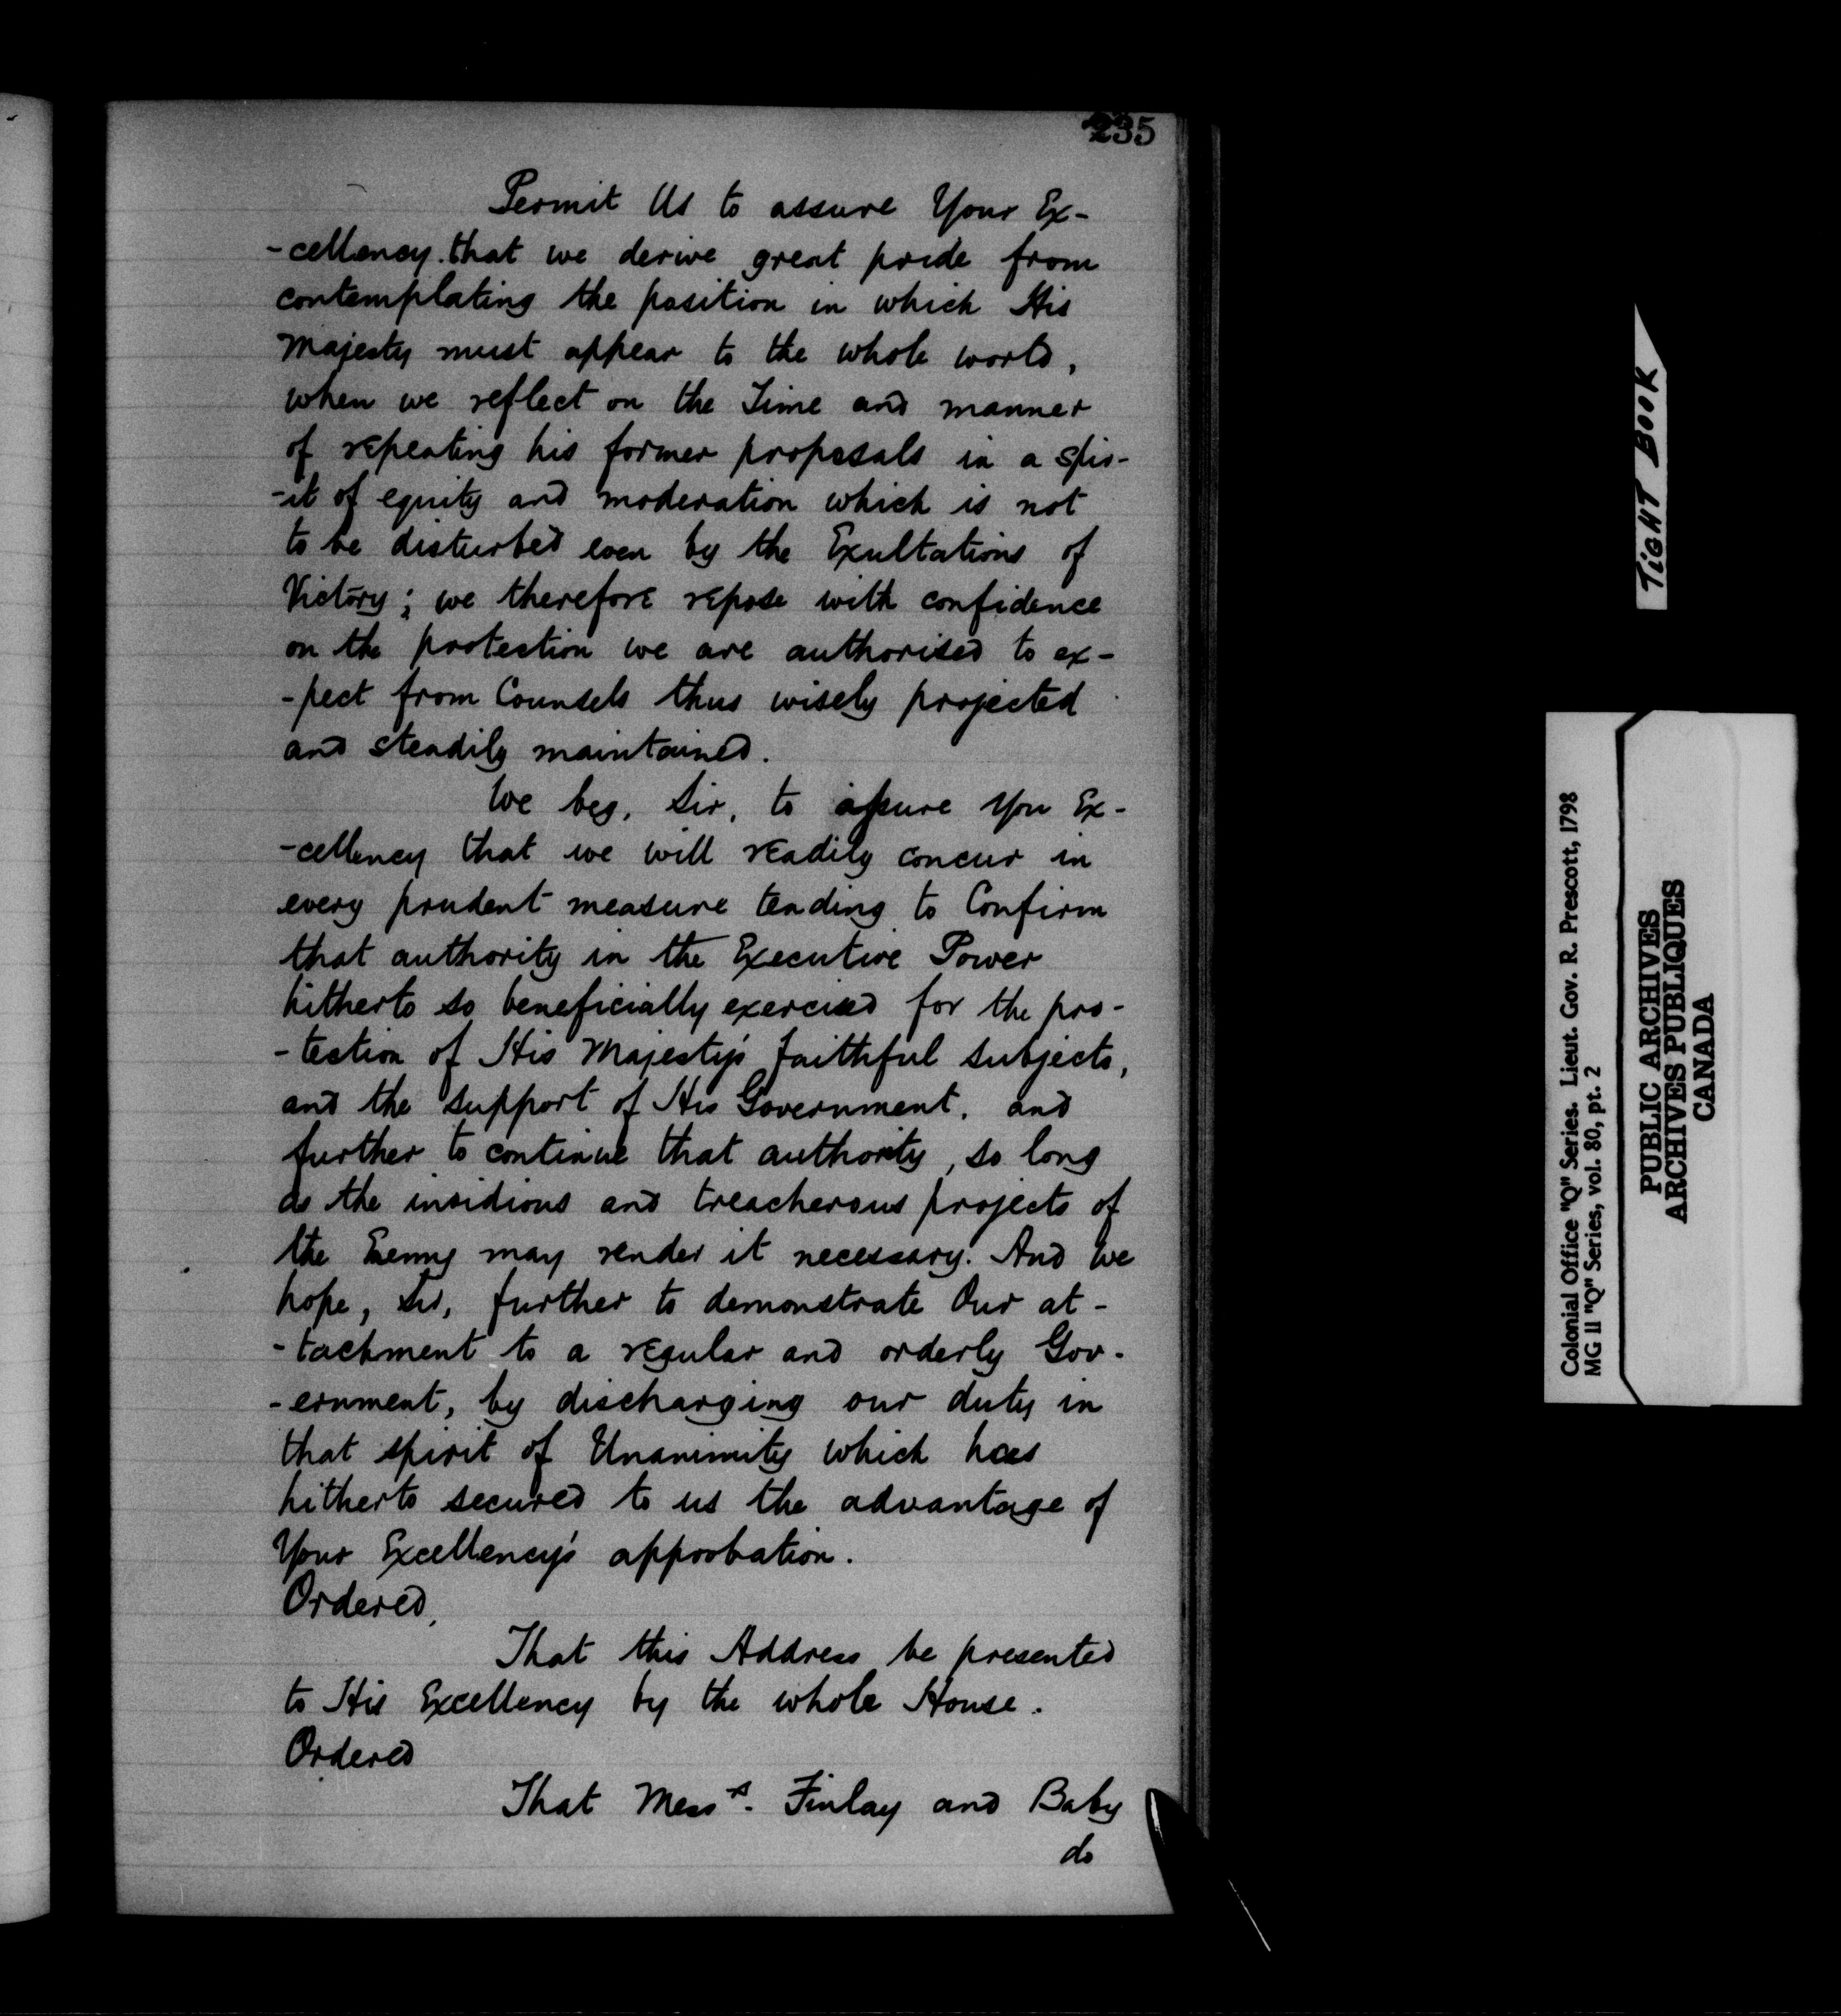 235
Permit Us to assure Your Ex-
-cellency that we derive great pride from
contemplating the position in which His
Majesty must appear to the whole world,
when we reflect on the Time and manner
of repeating his former proposals in a spir-
-it of equity and moderation which is not
to be disturbed even by the Exultations of
Victory; we therefore repose with confidence
on the protection we are authorised to ex-
-pect from Counsels thus wisely projected
and steadily maintained.
We beg, Sir, to assure You Ex-
-cellency that we will readily concur in
every prudent measure tending to Confirm
that authority in the Executive Power
hitherto so beneficially exercised for the pro-
-tection of His Majesty's faithful subjects,
and the support of His Government, and
further to continue that authority, so long
as the insidious and treacherous projects of
the Enemy may render it necessary. And we
hope, Sir, further to demonstrate Our at-
-tachment to a regular and orderly Gov-
-ernment, by discharging our duty in
that spirit of Unanimity which has
hitherto secured to us the advantage of
Your Excellency's approbation.
Ordered,
That this Address be presented
to His Excellency by the whole House.
Ordered
That Messrs. Finlay and Baby
do
TIGHT BOOK
Colonial Office "Q" Series. Lieut. Gov. R. Prescott, 1798
MG 11 "Q" Series, vol. 80, pt. 2
PUBLIC ARCHIVES
ARCHIVES PUBLIQUES
CANADA